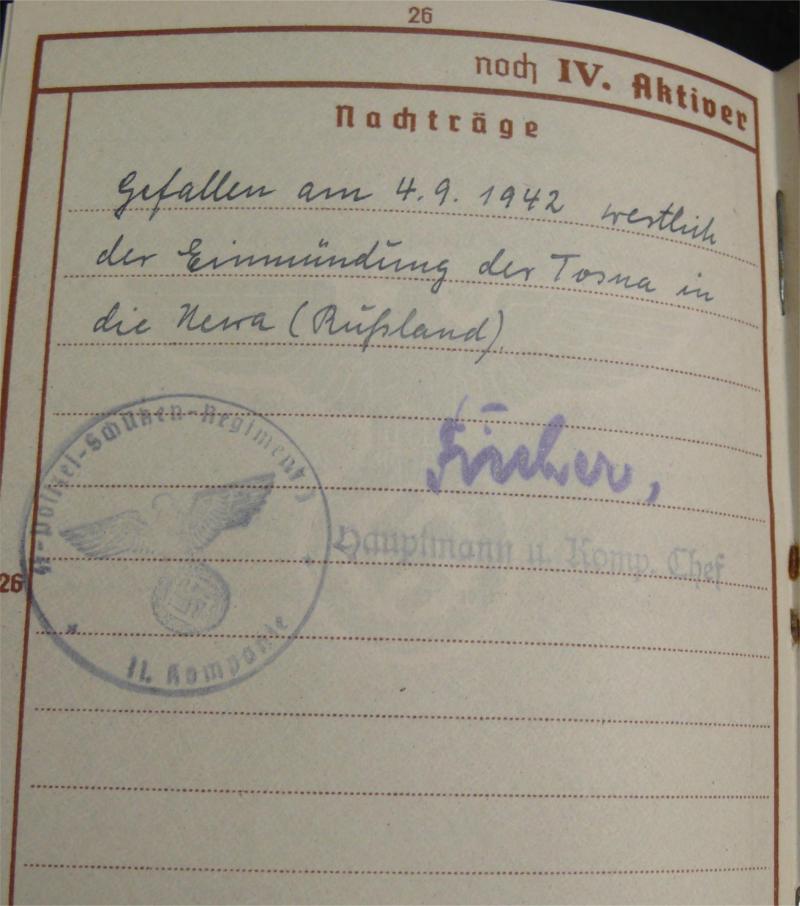 26
noch IV. Aktiver
Nachträge
Gefallen am 4.9.1942 westlich
der Einmündung der Tosna in
die Newa (Rußland)
Fischer,
Hauptmann u. Komp. Chef
SS-Polizei-Schützen-Regiment
11. Kompanie
26